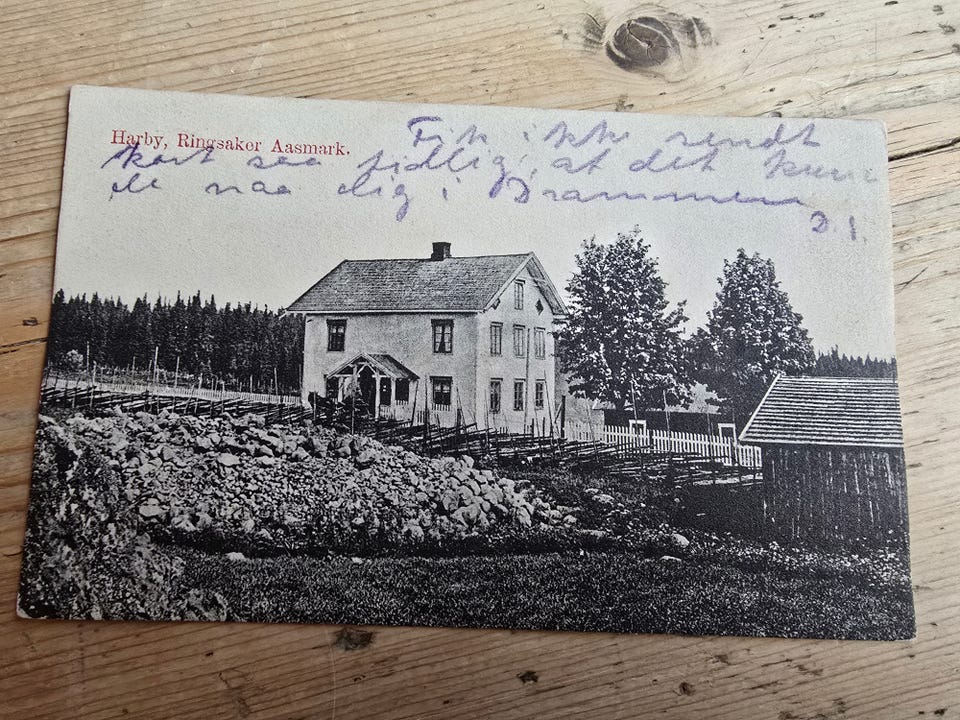 Harby, Ringsaker Aasmark.
Fik ikke sendt
kort saa tidlig, at det kun
de naa dig i Drammen
D. S.